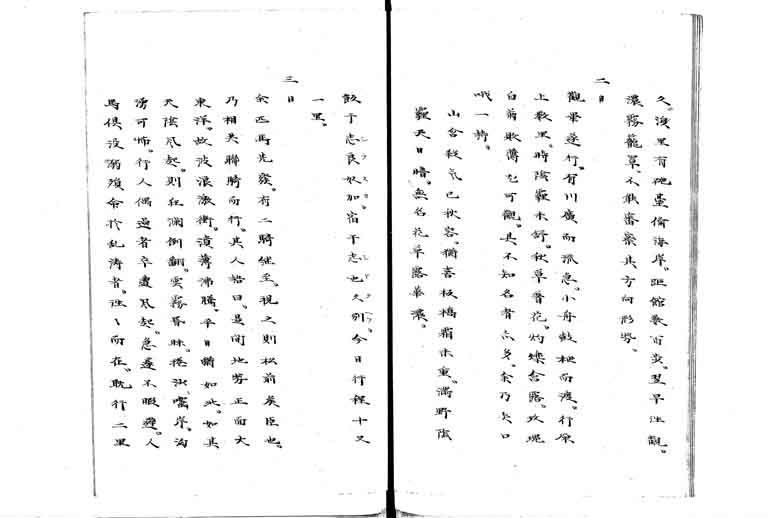 久。渡里有砲臺倚海岸。距館泰百奕。翌早往觀。
濃霧籠罩。不能審察其方向形勢。
二日
觀畢遂行。有川廣而流急。小舟鼓枻而渡。行原
上數里。時陰霾未舒。秋草着花。灼燦含露。玫瑰
白菊敗薄尤可觀。其不知名者亦多。余乃矢口
哦一詩。
山含殺氣已秋容。獨喜板橋霜未重。滿野陰
霾天日暗。無名花草露華濃。
飯于志良奴加。宿于志也久別。今日行程十又
一里。
三日
余匹馬先發。有二騎繼至。視之則松前矦臣也。
乃相共聯騎而行。其人語曰。是間地勢正面大
東洋。故波浪激衝。濆薄沸騰。平日猶如此。如其
天陰風起。則狂瀾倒翻。雲霧昏昧。捲沙嚙岸。洶
湧可怖。行人偶過者卒遭風起。急遽不暇避。人
馬俱没溺殞命於乱濤者。往々而在。耽行二里